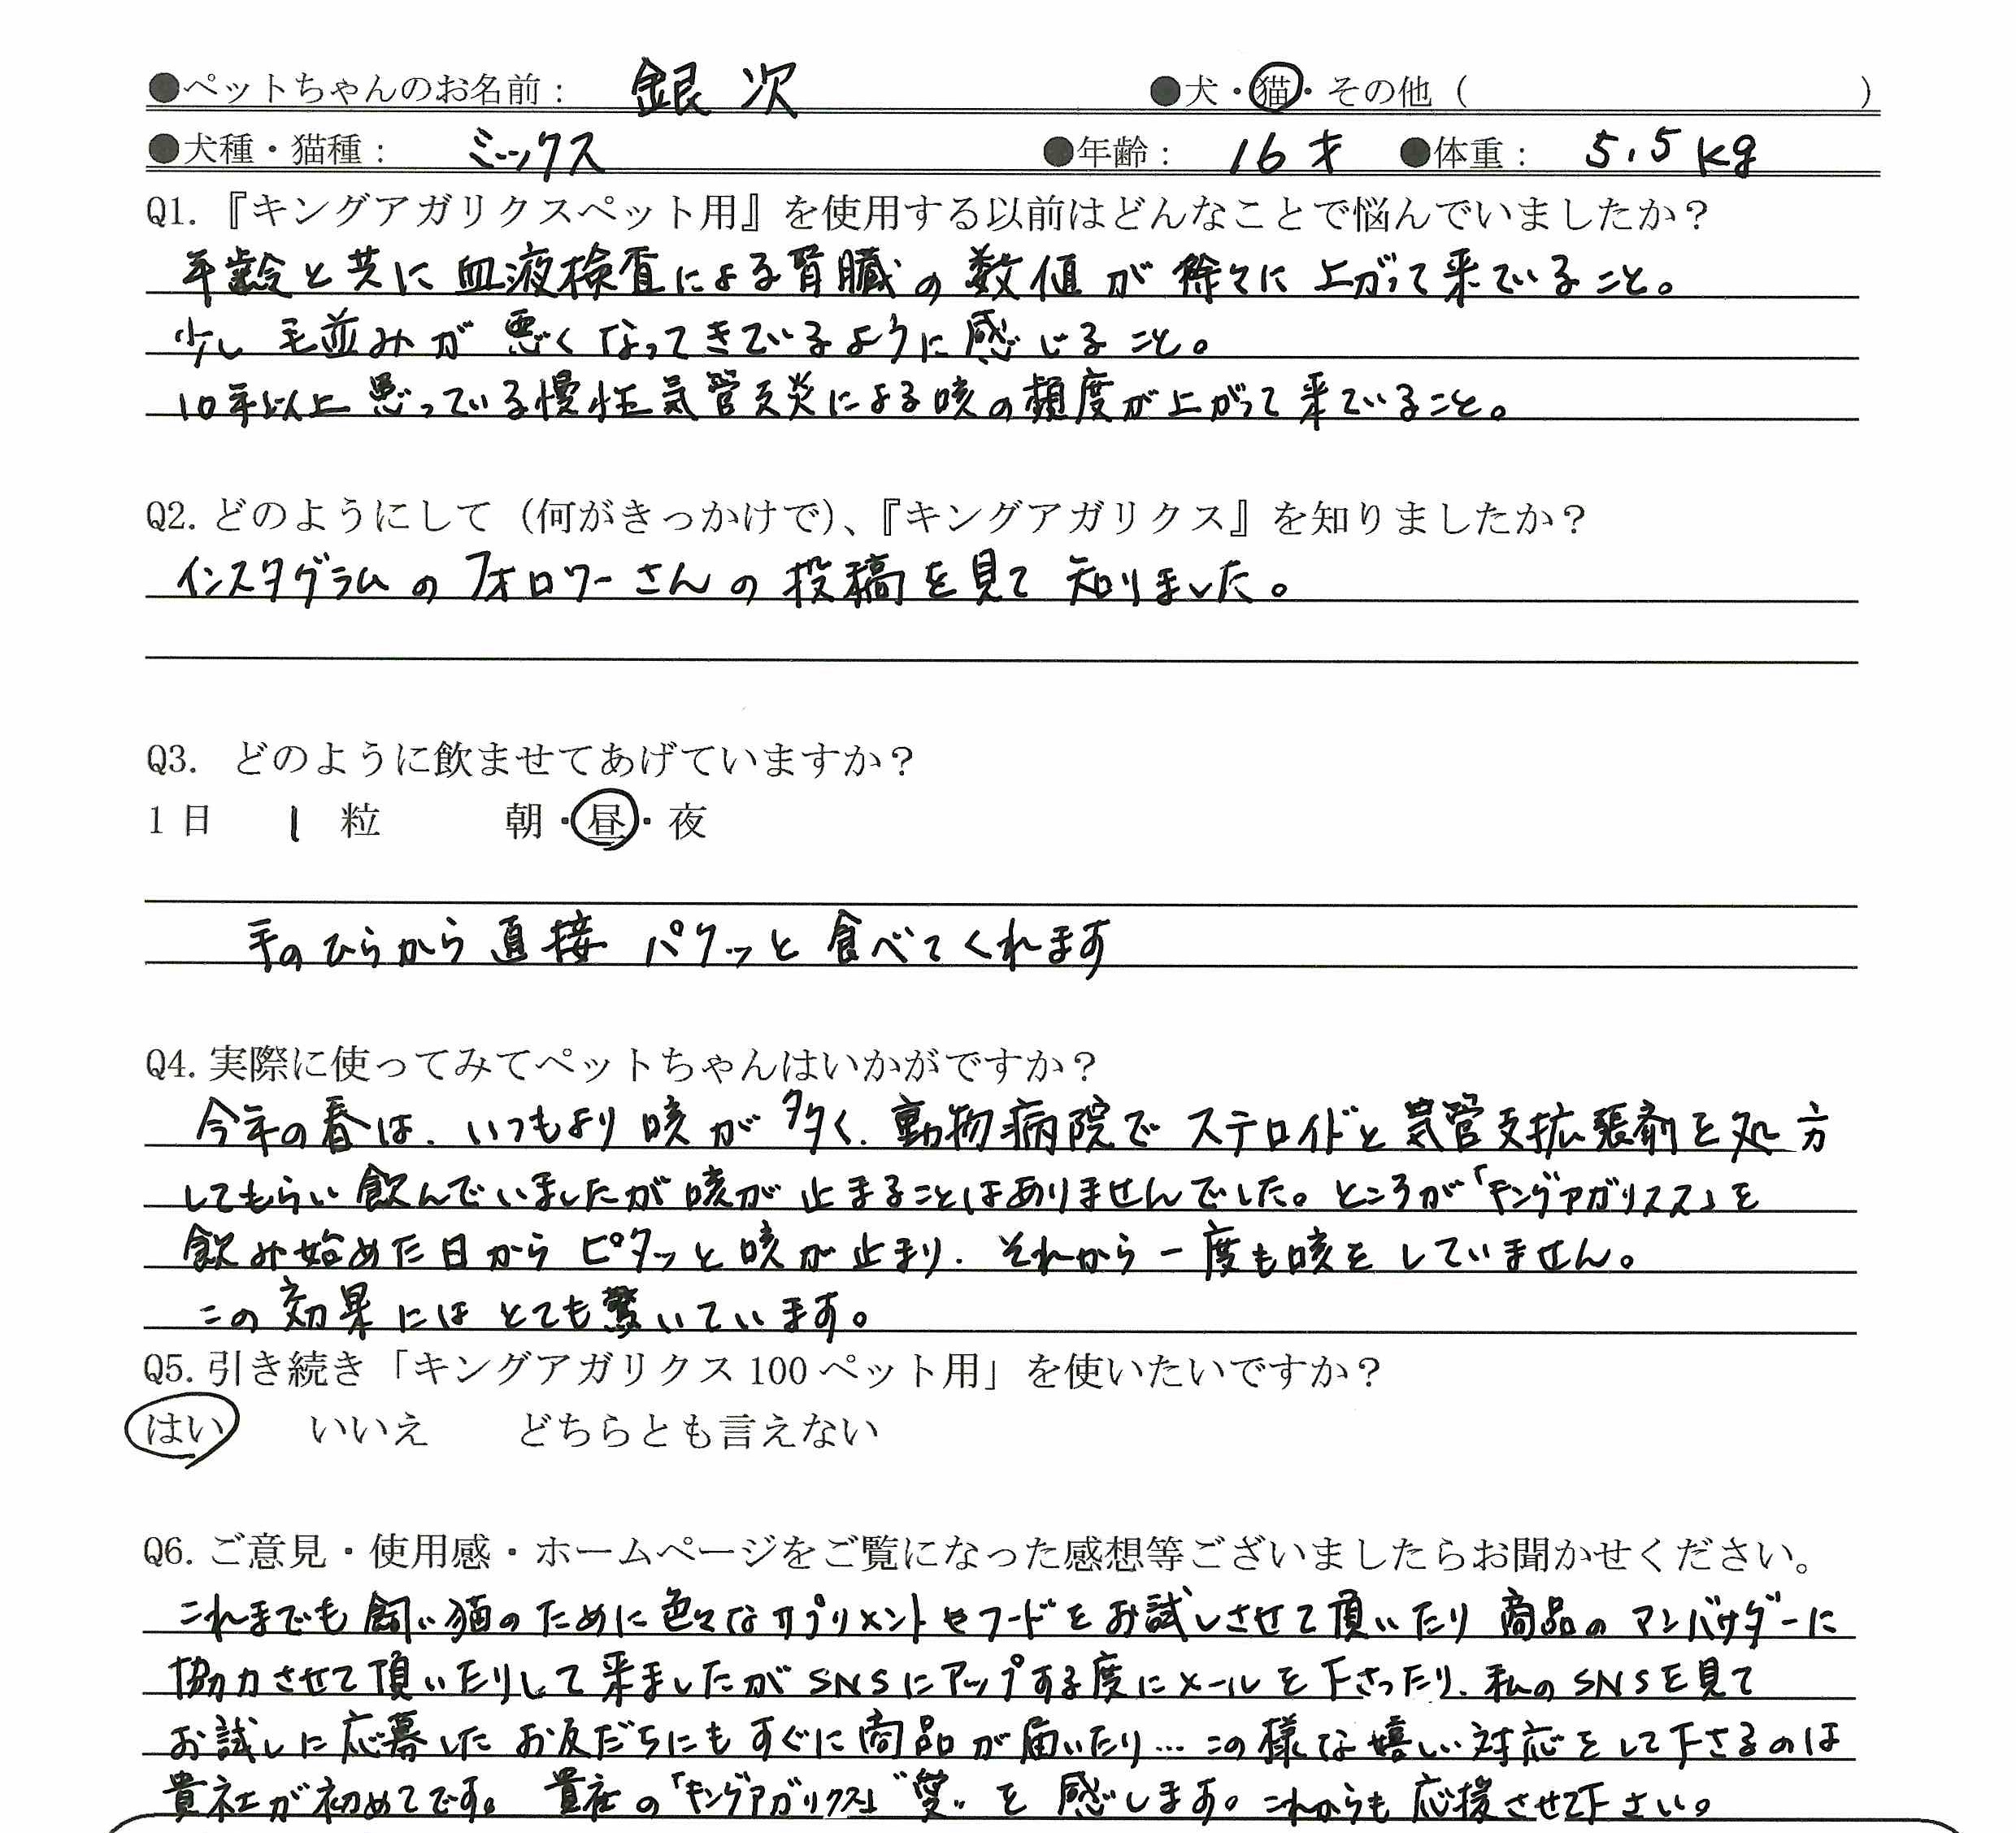 ●ペットちゃんのお名前： 銀次 ●犬・猫・その他（ ）
●犬種・猫種： ミックス ●年齢： 16才 ●体重： 5.5kg
Q1.『キングアガリクスペット用』を使用する以前はどんなことで悩んでいましたか？
年齢と共に血液検査による腎臓の数値が徐々に上がって来ていること。
少し毛並みが悪くなってきているように感じること。
10年以上患っている慢性気管支炎による咳の頻度が上がって来ていること。
Q2.どのようにして（何がきっかけで）、『キングアガリクス』を知りましたか？
インスタグラムのフォロワーさんの投稿を見て知りました。
Q3. どのように飲ませてあげていますか？
1日 1 粒 朝・昼・夜
手のひらから直接パクッと食べてくれます
Q4.実際に使ってみてペットちゃんはいかがですか？
今年の春は、いつもより咳が多く、動物病院でステロイドと気管支拡張剤を処方
してもらい飲んでいましたが咳が止まることはありませんでした。ところが「キングアガリスス」を
飲み始めた日からピタッと咳が止まり、それから一度も咳をしていません。
この効果にはとても驚いています。
Q5.引き続き「キングアガリクス100ペット用」を使いたいですか？
はい いいえ どちらとも言えない
Q6.ご意見・使用感・ホームページをご覧になった感想等ございましたらお聞かせください。
これまでも飼い猫のために色々なサプリメントやフードをお試しさせて頂いたり商品のアンバサダーに
協力させて頂いたりして来ましたがSNSにアップする度にメールを下さったり、私のSNSを見て
お試しに応募したお友だちにもすぐに商品が届いたり…この様な嬉しい対応をして下さるのは
貴社が初めてです。貴社の「キングアガリクス」"愛"を感じます。これからも応援させて下さい。